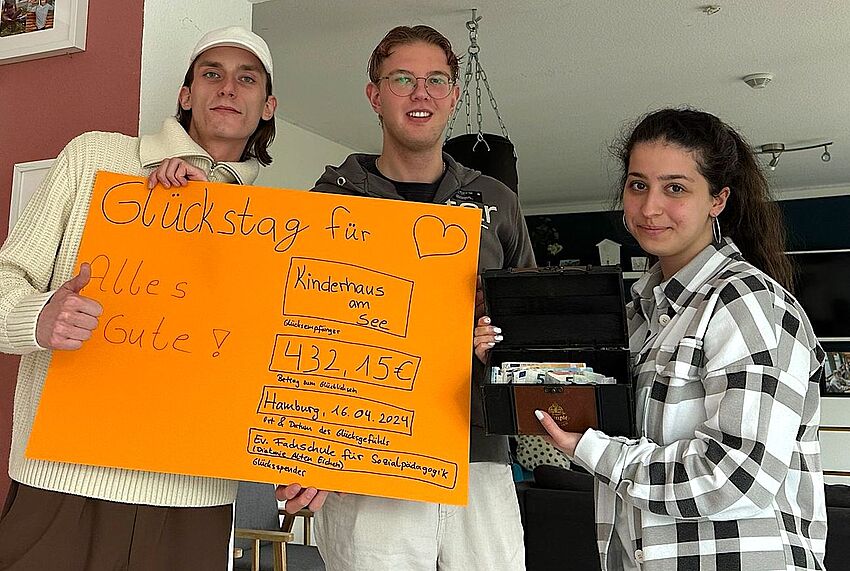 Glückstag für
Alles
Gute!
Kinderhaus
am
See
Glücksempfänger
432,15€
Betrag zum Glücklichsein
Hamburg, 16.04.2024
Ort & Datum des Glücksgefühls
Ev. Fachschule für Sozialpädagogik
(Diakonie Alten Eichen)
Glücksspender
5